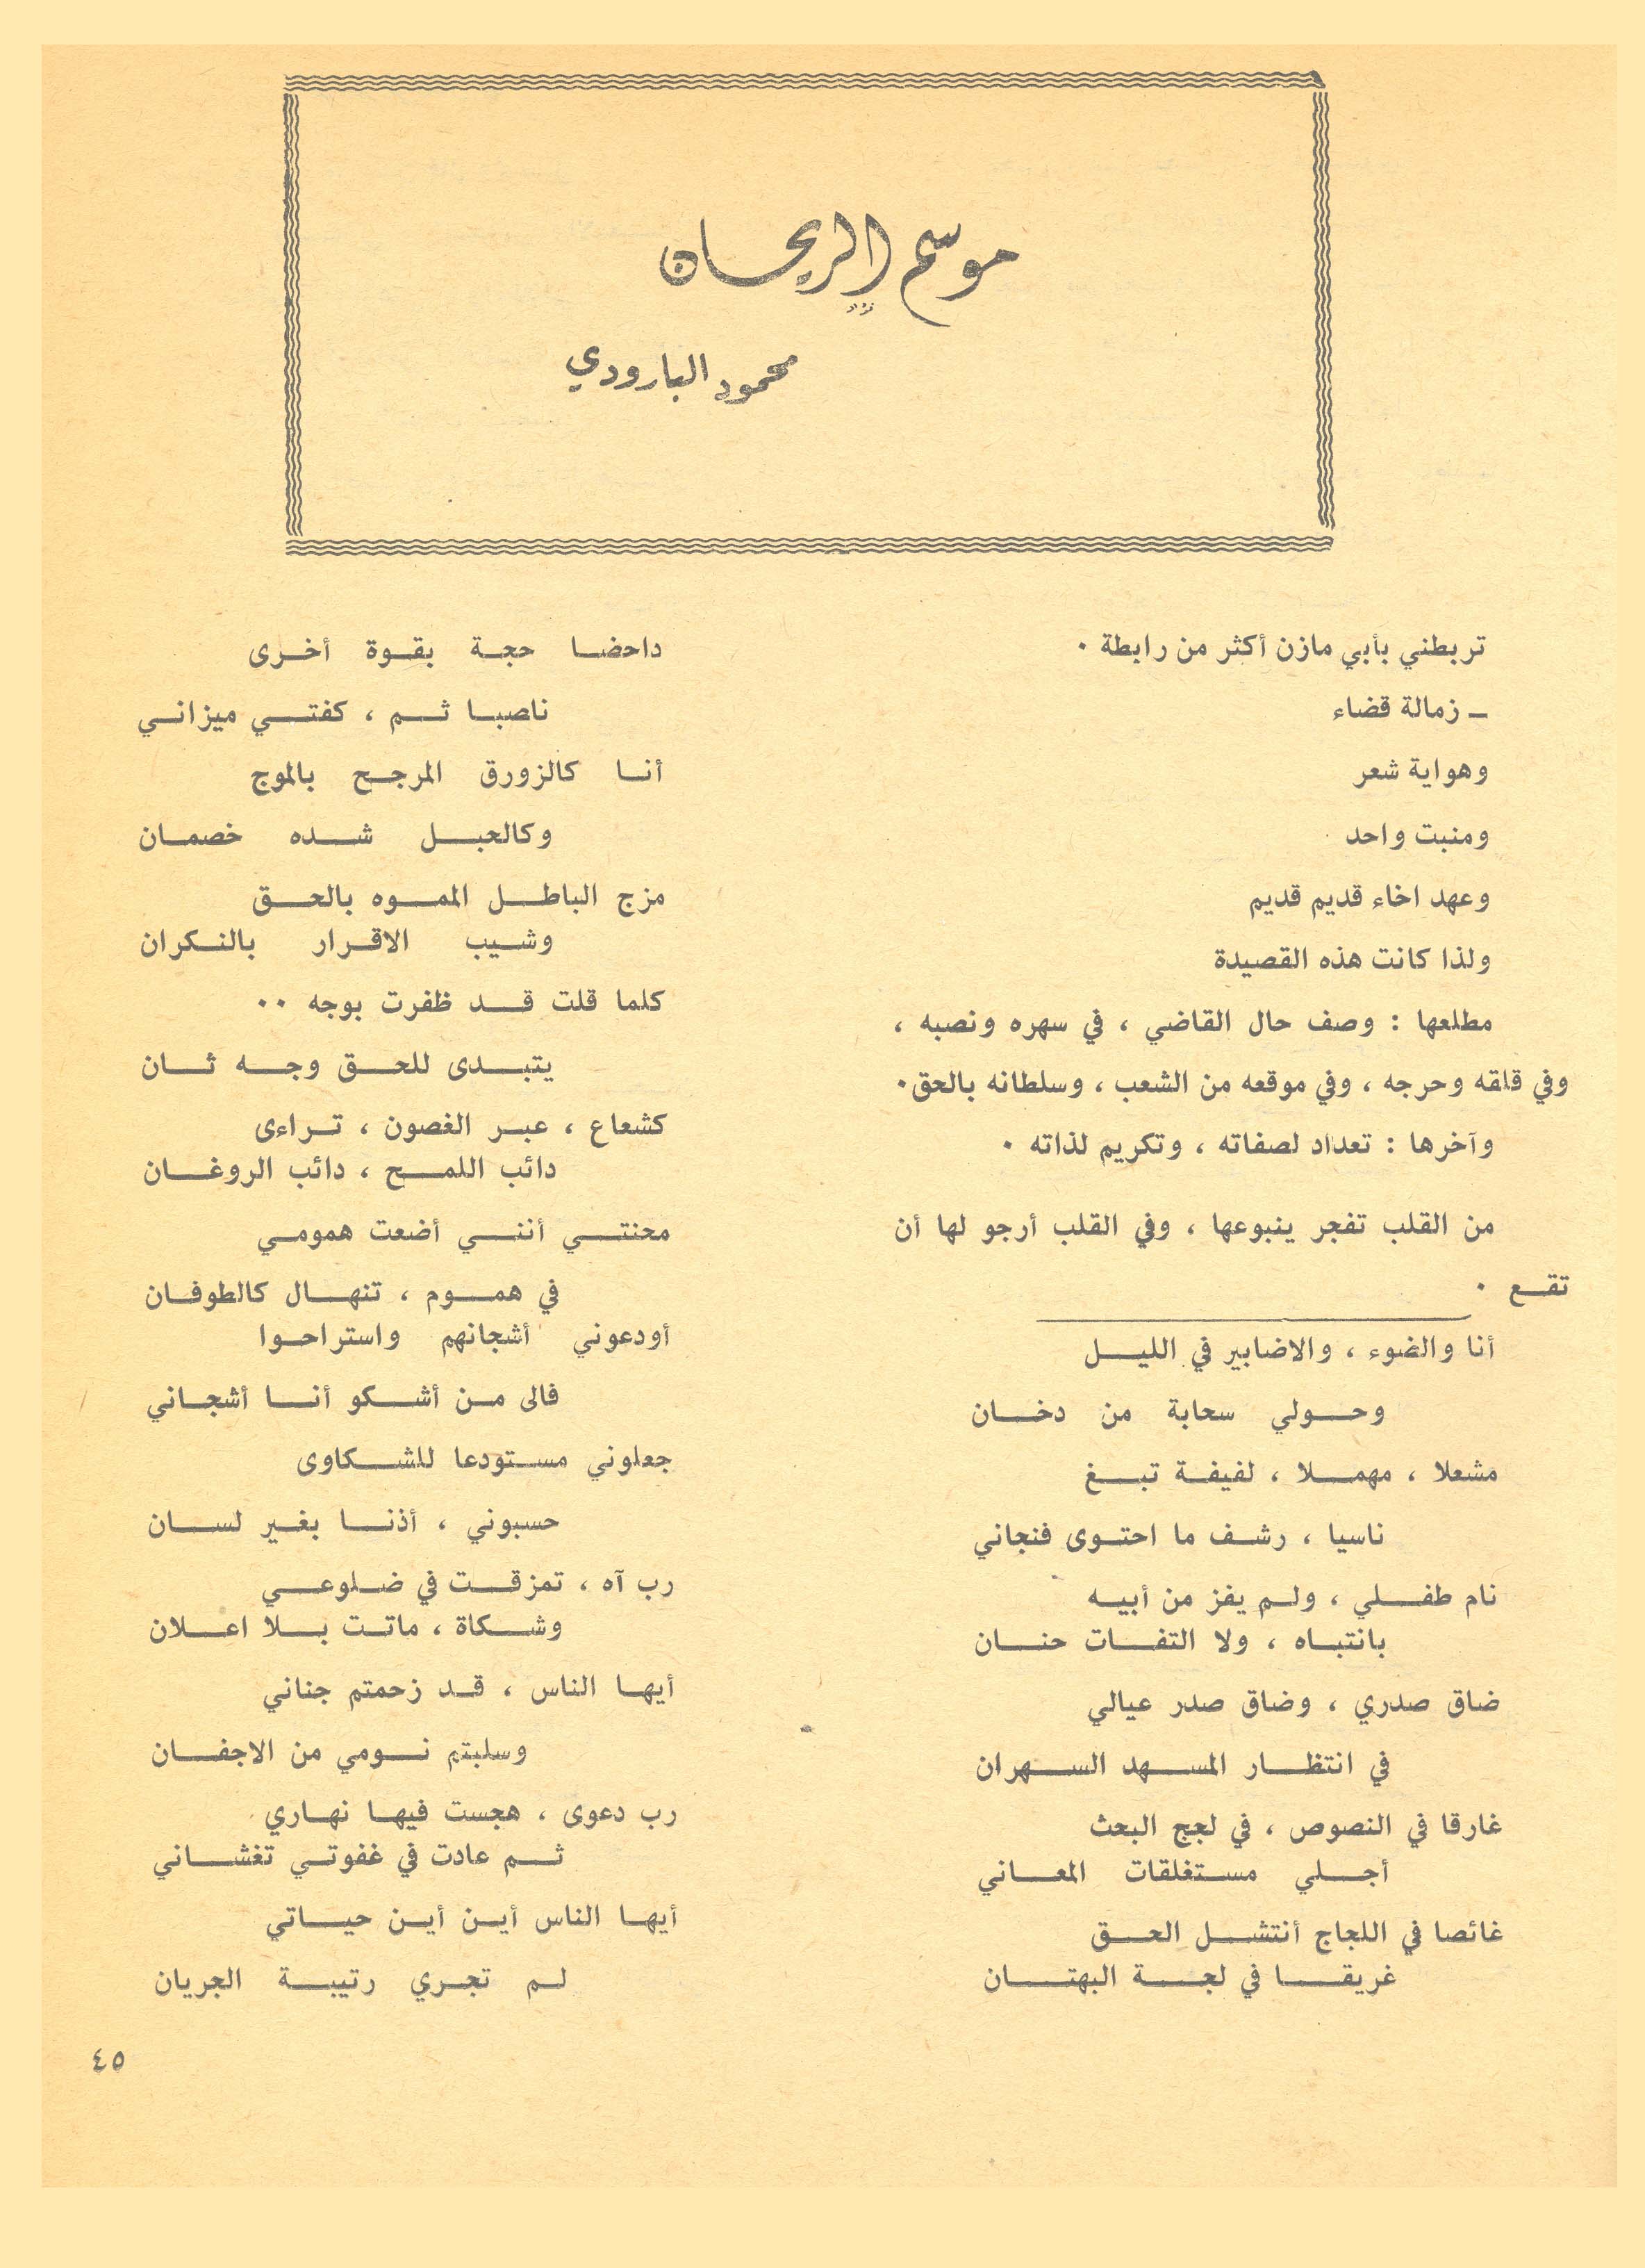 موسم الريحان
محمود البارودي
تربطني بأبي مازن أكثر من رابطة ٠
ــ زمالة قضاء
وهواية شعر
ومنبت واحد
وعهد اخاء قديم قديم
ولذا كانت هذه القصيدة
مطلعها : وصف حال القاضي ، في سهره ونصبه ،
وفي قلقه وحرجه ، وفي موقعه من الشعب ، وسلطانه بالحق٠
وآخرها : تعداد لصفاته ، وتكريم لذاته ٠
من القلب تفجر ينبوعها ، وفي القلب أرجو لها أن
تقع ٠
أنا والضوء ، والاضابير في الليل
وحولي سحابة من دخان
مشعلا ، مهملا ، لفيفة تبغ
ناسيا ، رشف ما احتوى فنجاني
نام طفلي ، ولم يفز من أبيه
بانتباه ، ولا التفات حنان
ضاق صدري ، وضاق صدر عيالي
في انتظار المسهد السهران
غارقا في النصوص ، في لجج البحث
أجلي مستغلقات المعاني
غائصا في اللجاج أنتشل الحق
غريقا في لجة البهتان
داحضا حجة بقوة أخرى
ناصبا ثم ، كفتي ميزاني
أنا كالزورق المرجح بالموج
وكالحبل شده خصمان
مزج الباطل المموه بالحق
وشيب الاقرار بالنكران
كلما قلت قد ظفرت بوجه ٠٠
يتبدى للحق وجه ثان
كشعاع ، عبر الغصون ، تراءى
دائب اللمح ، دائب الروغان
محنتي أنني أضعت همومي
في هموم ، تنهال كالطوفان
أودعوني أشجانهم واستراحوا
فالى من أشكو أنا أشجاني
جعلوني مستودعا للشكاوى
حسبوني ، أذنا بغير لسان
رب آه ، تمزقت في ضلوعي
وشكاة ، ماتت بلا اعلان
أيها الناس ، قد زحمتم جناني
وسلبتم نومي من الاجفان
رب دعوى ، هجست فيها نهاري
ثم عادت في غفوتي تغشاني
أيها الناس أين أين حياتي
لم تجري رتيبة الجريان
٤٥